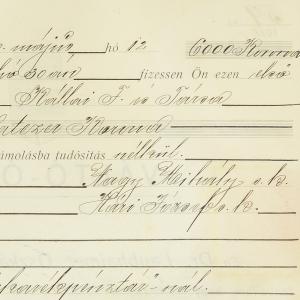 május hó 12 6000 Korona
hó 30 án fizessen Ön ezen első
Kállai F. és Társa
atezer Korona
ámolásba tudósítás nélkül.
Nagy Mihály s. k.
Kári József s. k.
takarékpénztár"-nál.